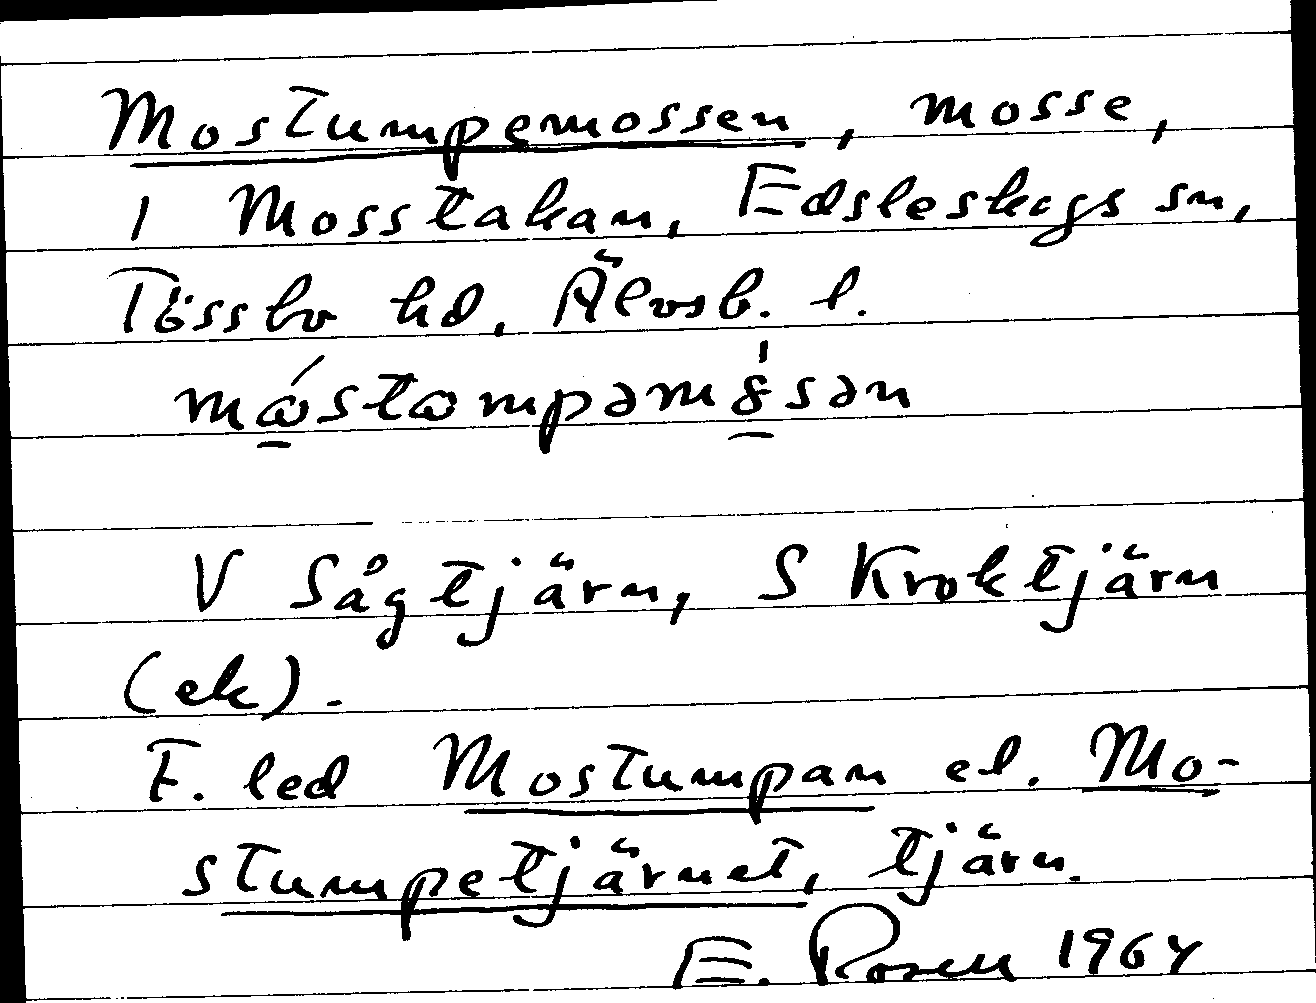 Mostumpemossen, mosse,
i Mosstakan, Edsleskogs sn,
Tössbo hd, Älvsb. l.
V Sågtjärn, S Kroktjärn
(ek).
F. led Mostumpan el. Mo-
stumpetjärnet, tjärn.
E. Rosen 1964